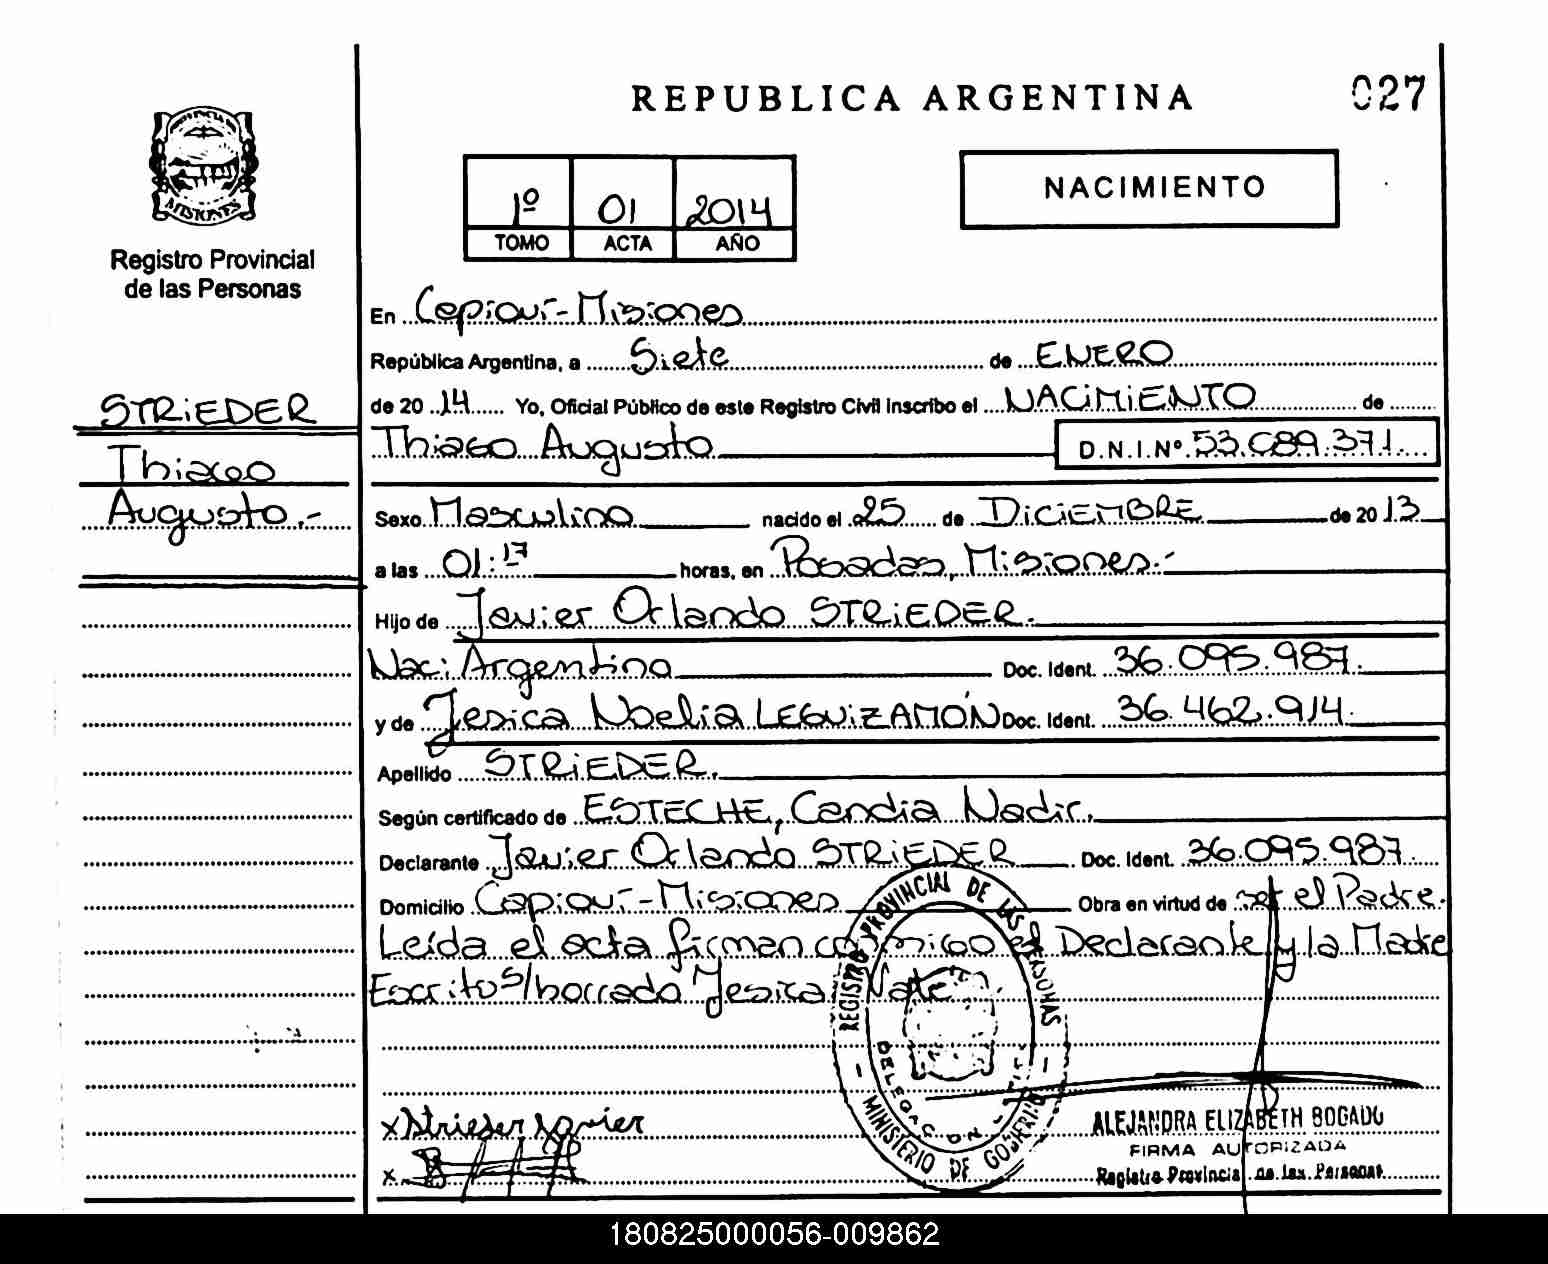 REPUBLICA ARGENTINA
027
PROVINCIA DE
MISIONES
Registro Provincial
de las Personas
1º 01 2014
TOMO ACTA AÑO
NACIMIENTO
En Capioví-Misiones
República Argentina, a Siete de ENERO
de 20 14 Yo, Oficial Público de este Registro Civil inscribo el NACiMiENTO de
Thiago Augusto D.N.I.Nº 53.689.371
STRiEDER
Thiago
Augusto.-
Sexo Masculino nacido el 25 de DiCiEMBRE de 20 13
a las 01:17 horas, en Posadas, Misiones.-
Hijo de Javier Orlando STRiEDER.
Nac: Argentina Doc. Ident. 36.095.987.
y de Jesica Noelia LEGUiZAMÓN Doc. Ident. 36.462.914.
Apellido STRiEDER.
Según certificado de ESTECHE, Candia Nadir.
Declarante Javier Orlando STRiEDER Doc. Ident. 36.095.987.
Domicilio Capioví-Misiones Obra en virtud de ser el Padre.
Leída el acta firman conmigo el Declarante y la Madre
Escrito s/borrado "Jesica" Vale
REGISTRO PROVINCIAL DE LAS PERSONAS
MINISTERIO DE GOBIERNO
x Strieder Javier
x
ALEJANDRA ELIZABETH BOGADO
FIRMA AUTORIZADA
Registro Provincial de las Personas
180825000056-009862